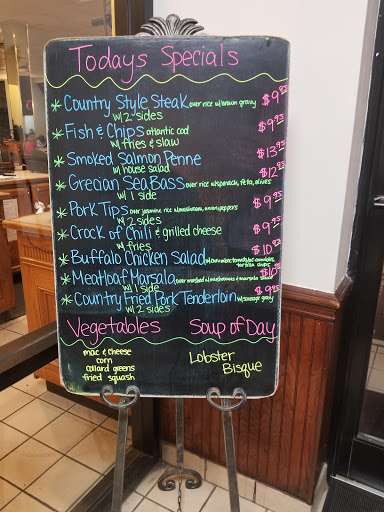 Todays Specials
* Country Style Steak over rice w/brown gravy $9.95
w/ 2 sides
* Fish & Chips atlantic cod $9.95
w/ fries & slaw
* Smoked Salmon Penne $13.95
w/ house salad
* Grecian Sea Bass over rice w/spinach, feta, olives $12.95
w/ 1 side
* Pork Tips over jasmine rice w/mushrooms, onions, peppers $9.95
w/ 2 sides
* Crock of Chili & grilled cheese $9.95
w/ fries
* Buffalo Chicken Salad $10.95
tortilla chips
* Meatloaf Marsala over mashed w/mushrooms & marsala sauce $10.95
w/ 1 side
* Country Fried Pork Tenderloin w/sausage gravy $9.95
w/ 2 sides
Vegetables Soup of Day
mac & cheese
corn
collard greens
fried squash
Lobster
Bisque